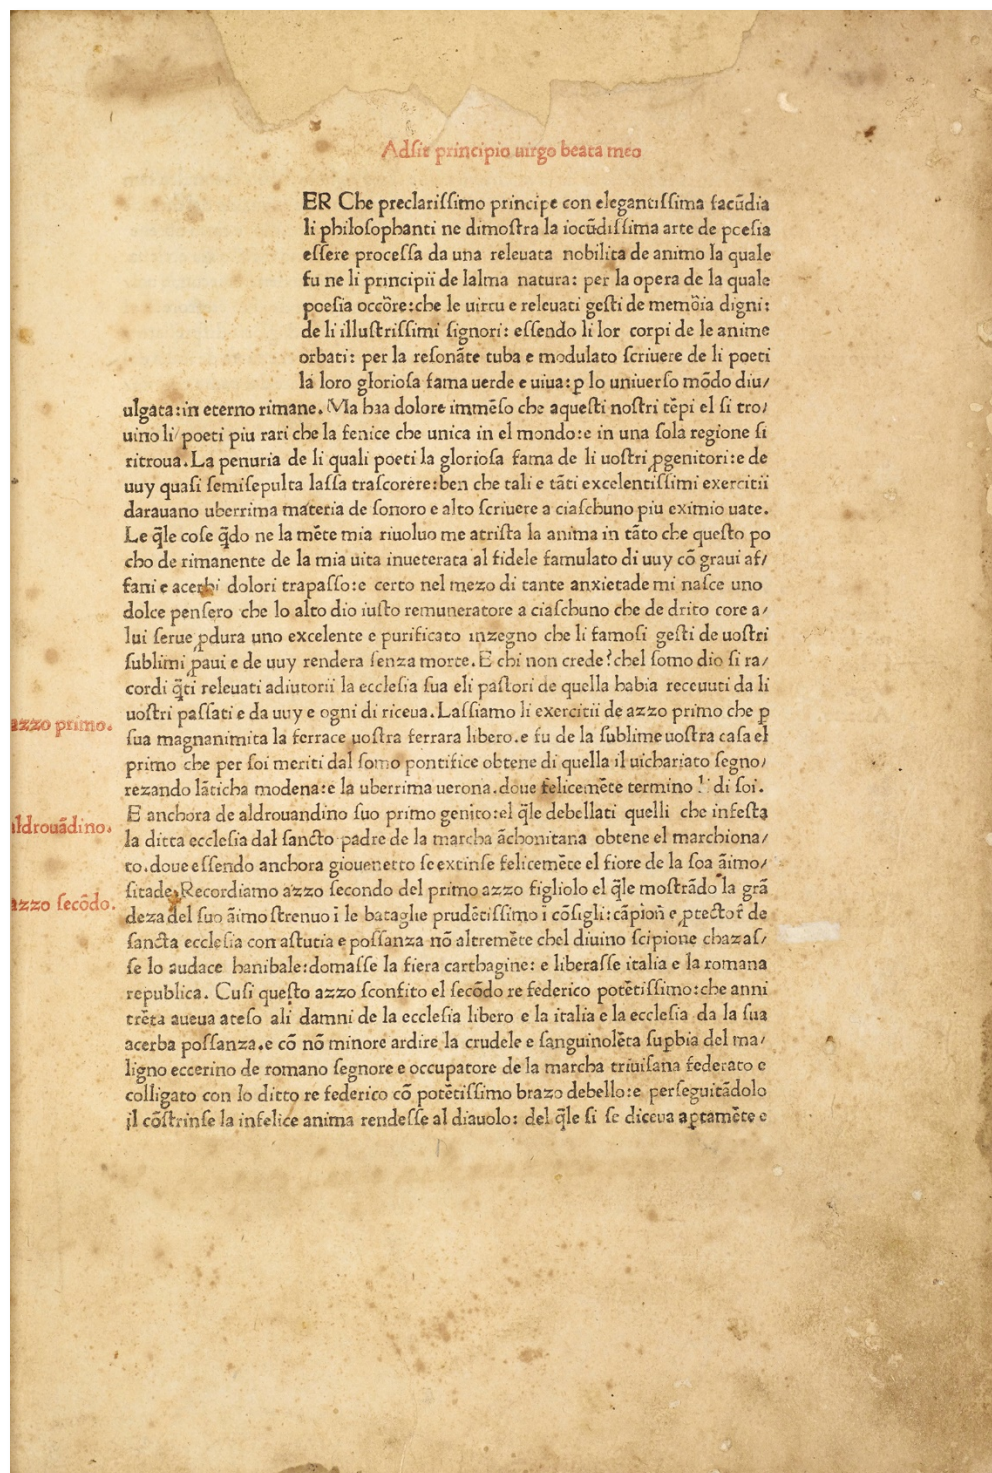 Adsit principio uirgo beata meo
ER Che preclarissimo principe con elegantissima facũdia
li philosophanti ne dimostra la iocũdissima arte de poesia
essere processa da una releuata nobilita de animo la quale
fu ne li principii de lalma natura: per la opera de la quale
poesia occõre:che le uirtu e releuati gesti de memõia digni:
de li illustrissimi signori: essendo li lor corpi de le anime
orbati: per la resonãte tuba e modulato scriuere de li poeti
la loro gloriosa fama uerde e uiua:ꝑ lo uniuerso mõdo diu/
ulgata:in eterno rimane. Ma haa dolore immẽso che aquesti nostri tẽpi el si tro/
uino li poeti piu rari che la fenice che unica in el mondo:e in una sola regione si
ritroua.La penuria de li quali poeti la gloriosa fama de li uostri ꝓgenitori:e de
uuy quasi semisepulta lassa trascorere:ben che tali e tãti excelentissimi exercitii
darauano uberrima materia de sonoro e alto scriuere a ciaschuno piu eximio uate.
Le q̃le cose q̃do ne la mẽte mia riuoluo me atrista la anima in tãto che questo po
cho de rimanente de la mia uita inueterata al fidele famulato di uuy cõ graui af/
fani e acerbi dolori trapasso:e certo nel mezo di tante anxietade mi nasce uno
dolce pensero che lo alto dio iusto remuneratore a ciaschuno che de drito core a/
lui serue ꝓdura uno excelente e purificato inzegno che li famosi gesti de uostri
sublimi ꝓaui e de uuy rendera senza morte.E chi non crede?chel somo dio si ra/
cordi q̃ti releuati adiutorii la ecclesia sua eli pastori de quella habia receuuti da li
uostri passati e da uuy e ogni di riceua.Lassiamo li exercitii de azzo primo che ꝑ
azzo primo.
sua magnanimita la ferrace uostra ferrara libero.e fu de la sublime uostra casa el
primo che per soi meriti dal somo pontifice obtene di quella il uichariato segno/
rezando lãticha modena:e la uberrima uerona.doue felicemẽte termino di soi.
E anchora de aldrouandino suo primo genito:el q̃le debellati quelli che infesta
aldrouãdino.
la ditta ecclesia dal sancto padre de la marcha ãchonitana obtene el marchiona/
to.doue essendo anchora giouenetto se extinse felicemẽte el fiore de la soa ãimo/
sitade.Recordiamo azzo secondo del primo azzo figliolo el q̃le mostrãdo la grã
azzo secõdo.
deza del suo ãimo strenuo ĩ le bataglie prudẽtissimo ĩ cõsigli:cãpioñ e ꝓtector̃ de
sancta ecclesia con astutia e possanza nõ altremẽte chel diuino scipione chazas/
se lo audace hanibale:domasse la fiera carthagine: e liberasse italia e la romana
republica. Cusi questo azzo sconfito el secõdo re federico potẽtissimo:che anni
trẽta aueua ateso ali damni de la ecclesia libero e la italia e la ecclesia da la sua
acerba possanza.e cõ nõ minore ardire la crudele e sanguinolẽta suꝑbia del ma/
ligno eccerino de romano segnore e occupatore de la marcha triuisana federato e
colligato con lo ditto re federico cõ potẽtissimo brazo debello:e perseguitãdolo
il cõstrinse la infelice anima rendesse al diauolo: del q̃le si se diceua aptamẽte e